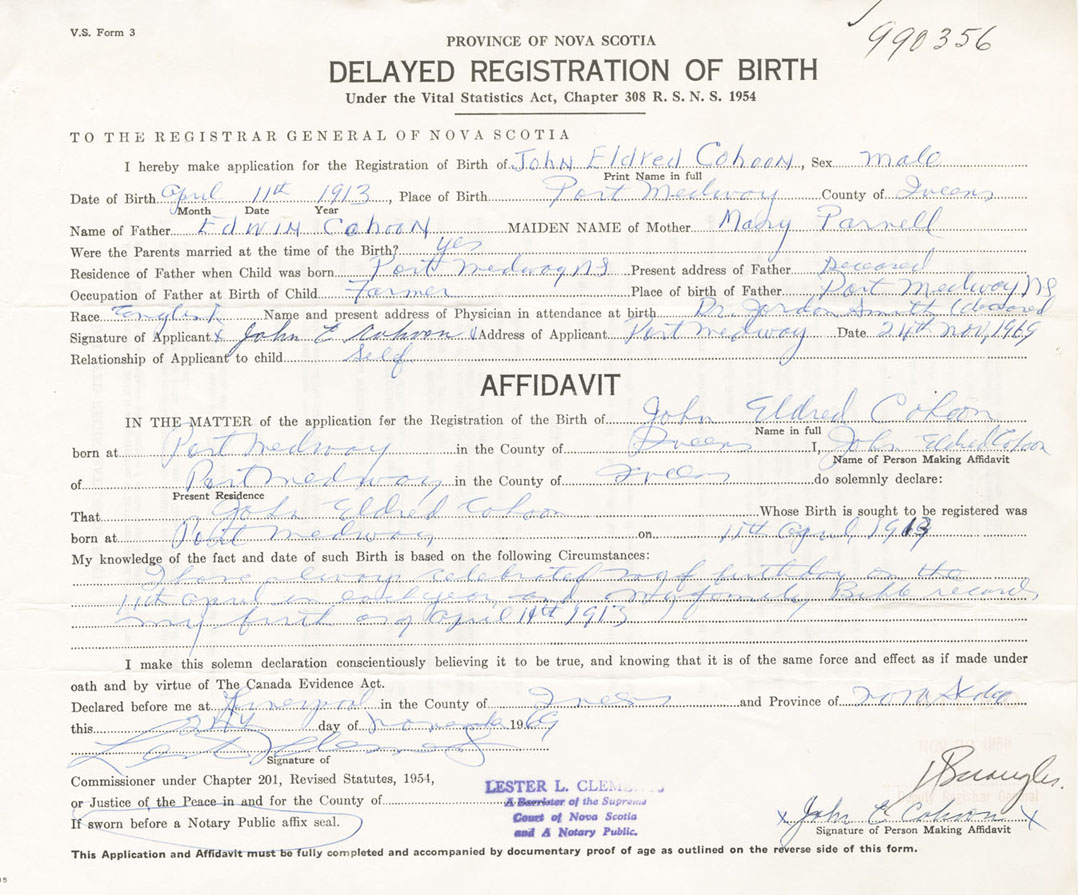 V.S. Form 3
990356
PROVINCE OF NOVA SCOTIA
DELAYED REGISTRATION OF BIRTH
Under the Vital Statistics Act, Chapter 308 R. S. N. S. 1954
TO THE REGISTRAR GENERAL OF NOVA SCOTIA
I hereby make application for the Registration of Birth of John Eldred Cohoon, Sex male
Print Name in full
Date of Birth April 11th 1913, Place of Birth Port Medway County of Queens
Month Date Year
Name of Father Edwin Cohoon MAIDEN NAME of Mother Mary Parnell
Were the Parents married at the time of the Birth? yes
Residence of Father when Child was born Port Medway NS Present address of Father Deceased
Occupation of Father at Birth of Child Farmer Place of birth of Father Port Medway NS
Race English Name and present address of Physician in attendance at birth Dr. Jordan Smith (deceased
Signature of Applicant x John E Cohoon Address of Applicant Port Medway Date 24th Nov, 1969
Relationship of Applicant to child Self
AFFIDAVIT
IN THE MATTER of the application for the Registration of the Birth of John Eldred Cohoon
Name in full
born at Port Medway in the County of Queens I, John Eldred Cohoon
Name of Person Making Affidavit
of Port Medway in the County of Queens do solemnly declare:
Present Residence
That John Eldred Cohoon Whose Birth is sought to be registered was
born at Port Medway on 11th April, 1913
My knowledge of the fact and date of such Birth is based on the following Circumstances:
I have always celebrated my birthday on the
11th April in each year, and my family Bible records
my birth as April 11th 1913
I make this solemn declaration conscientiously believing it to be true, and knowing that it is of the same force and effect as if made under
oath and by virtue of The Canada Evidence Act.
Declared before me at Liverpool in the County of Queens and Province of Nova Scotia
this 24th day of November 1969
Signature of
Commissioner under Chapter 201, Revised Statutes, 1954,
or Justice of the Peace in and for the County of
If sworn before a Notary Public affix seal.
LESTER L. CLEM
A Barrister of the Supreme
Court of Nova Scotia
and A Notary Public.
Deputy Registrar General
x John E Cohoon x
Signature of Person Making Affidavit
This Application and Affidavit must be fully completed and accompanied by documentary proof of age as outlined on the reverse side of this form.